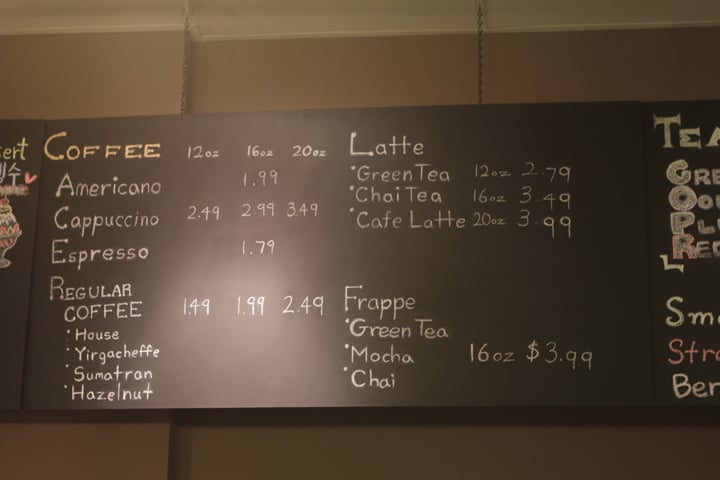 ert
빙수
COFFEE 12oz 16oz 20oz
Americano 1.99
Cappuccino 2.49 2.99 3.49
Espresso 1.79
REGULAR
COFFEE 1.49 1.99 2.49
·House
·Yirgacheffe
·Sumatran
·Hazelnut
Latte
·Green Tea 12oz 2.79
·Chai Tea 16oz 3.49
·Cafe Latte 20oz 3.99
Frappe
·Green Tea
·Mocha 16oz $3.99
·Chai
TEA
GRE
OO
PL
RE
Smo
Stra
Ber